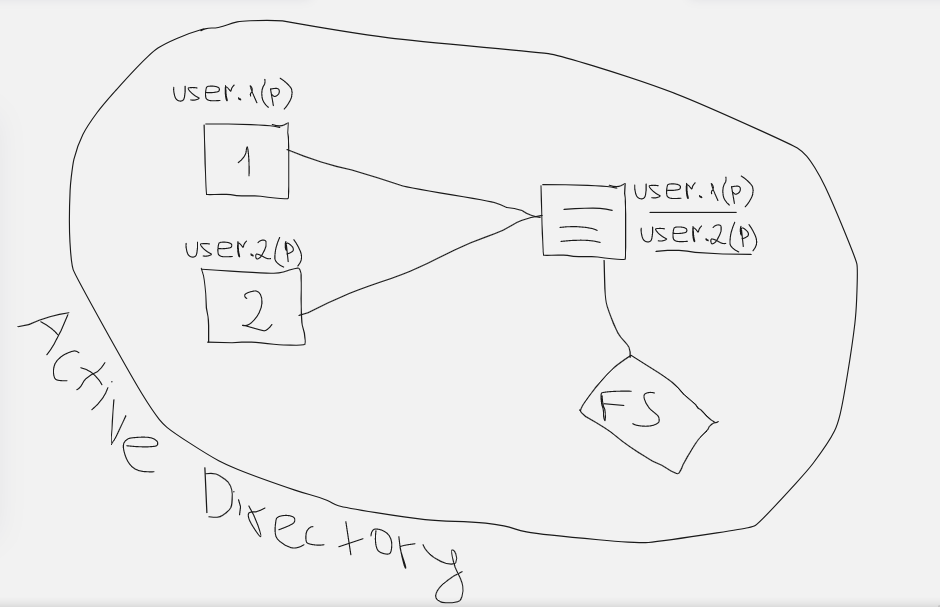 user.1(p)
1
user.1(p)
user.2(p)
user.2(p)
2
FS
Active Directory